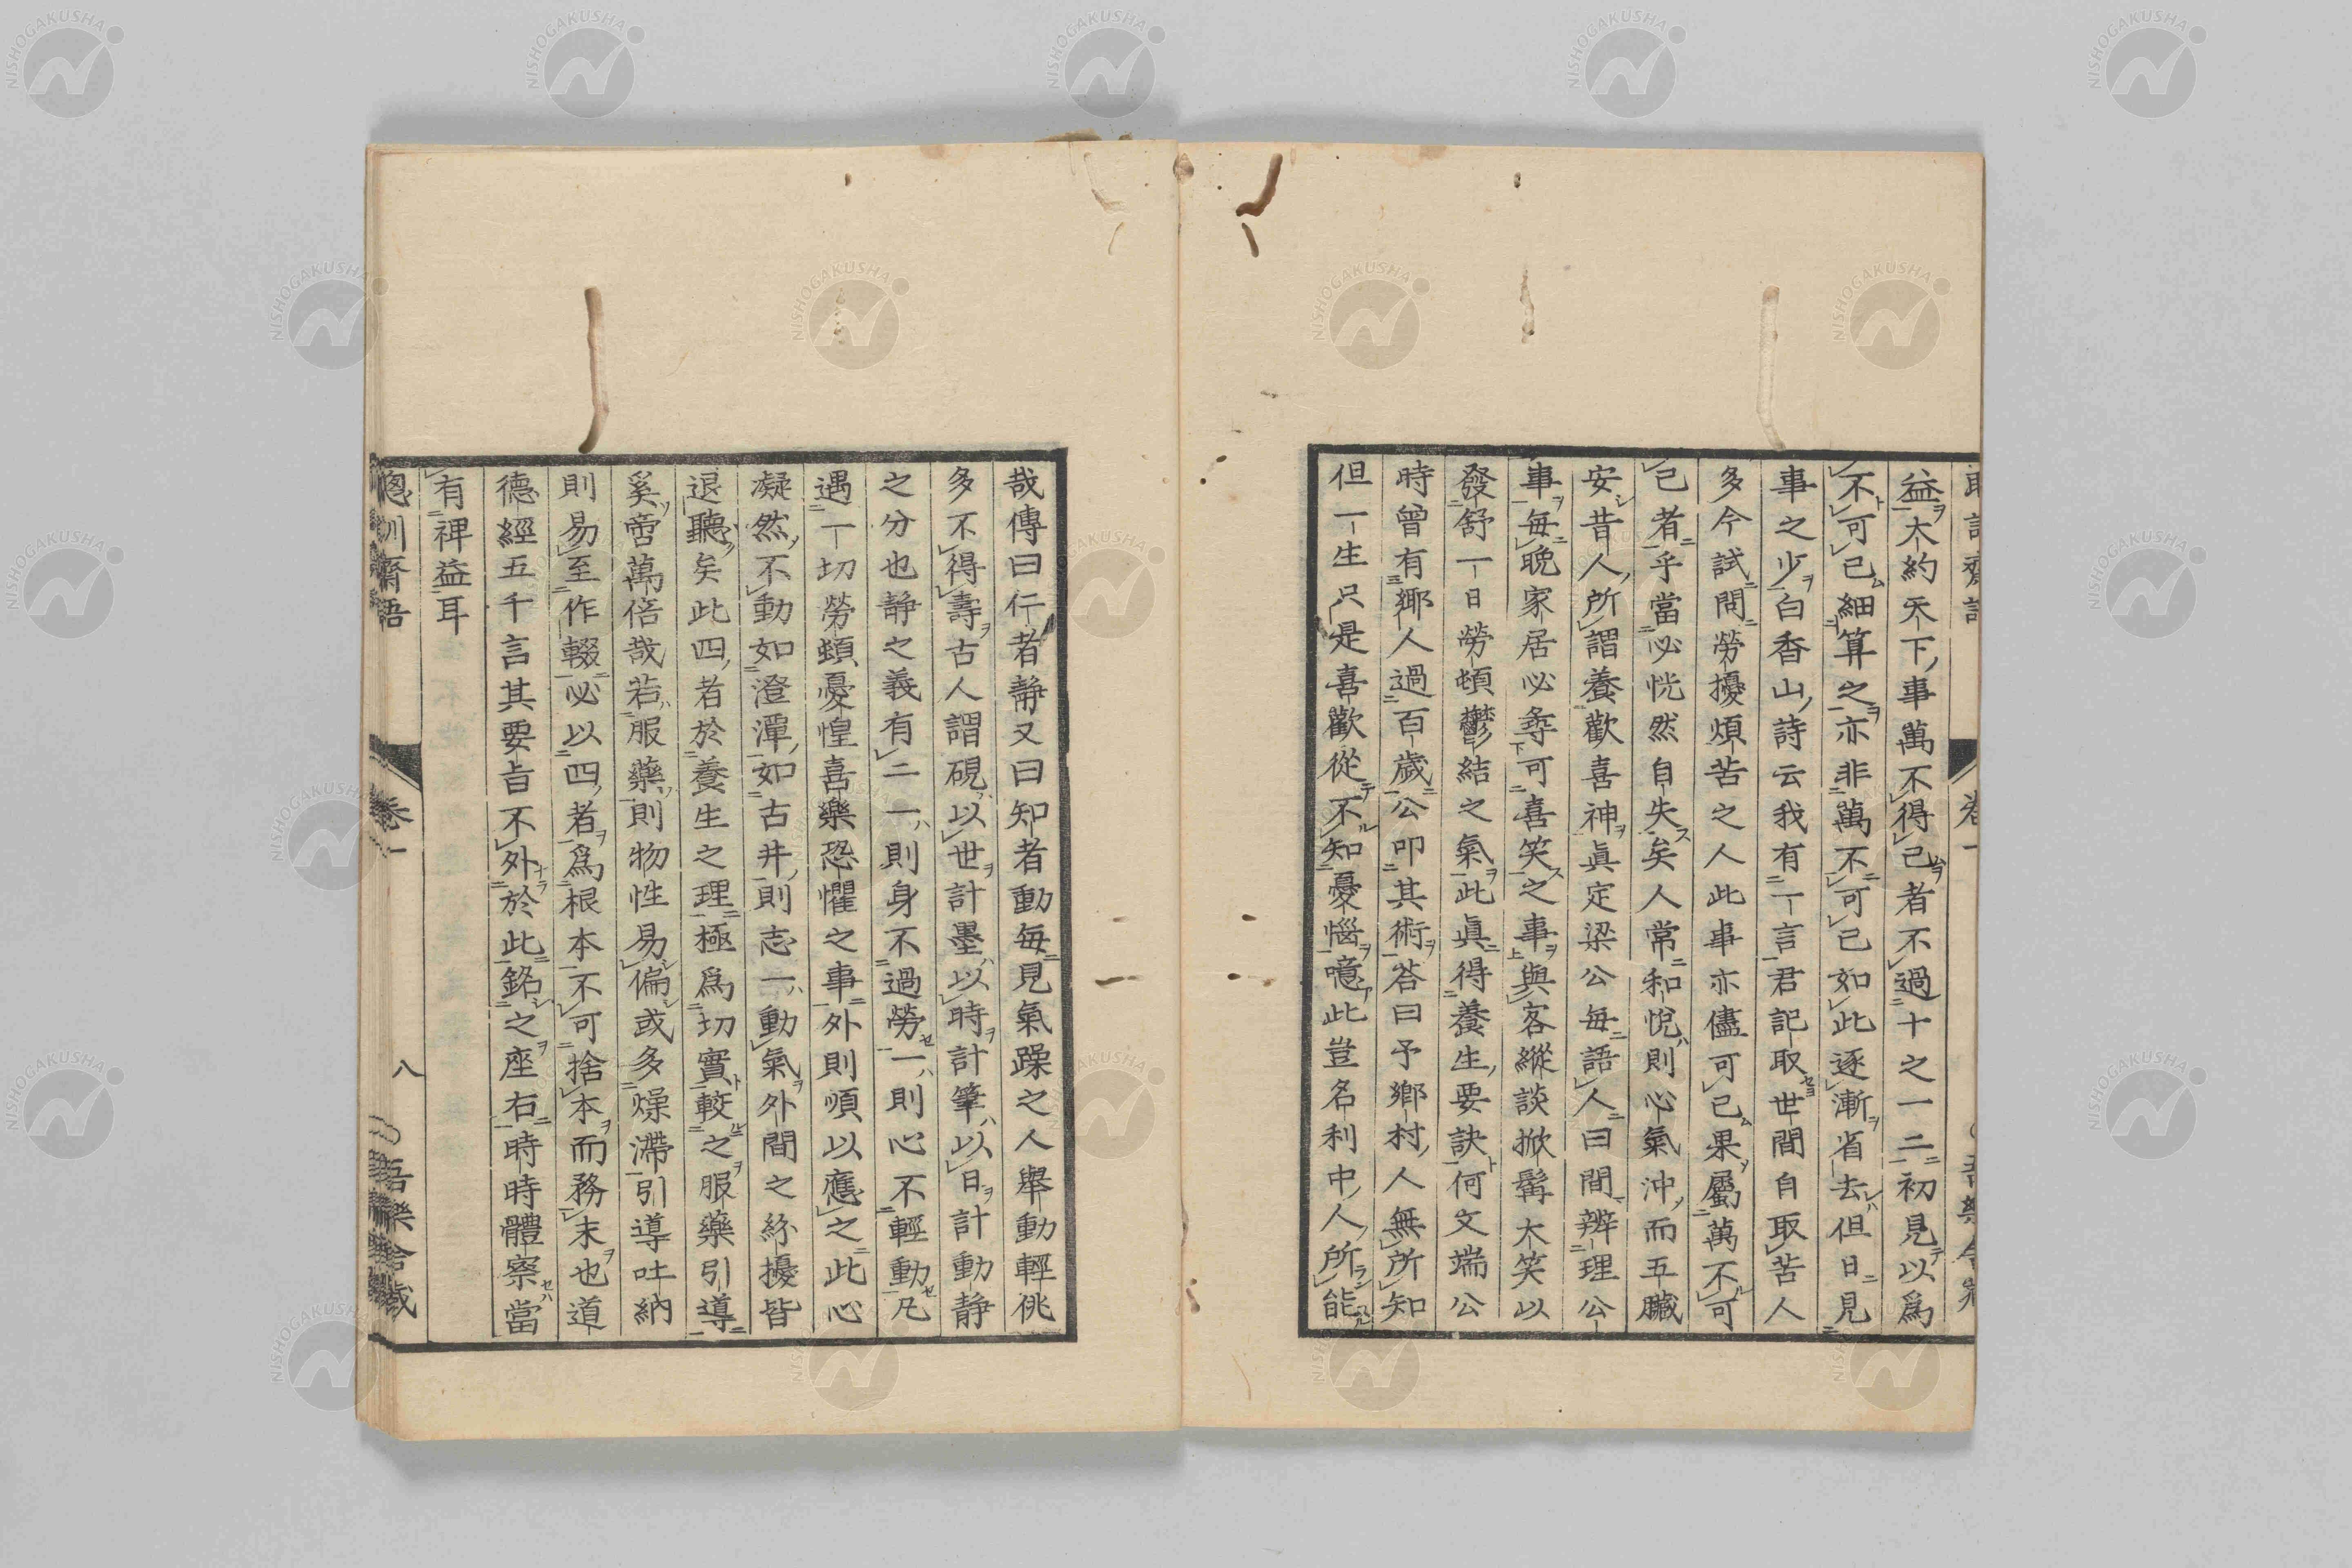 益大約天下事萬不得已者不過十之一二初見以爲
不可已細算之亦非萬不可已如此逐漸省去但日見
事之少白香山詩云我有一言君記取世間自取苦人
多今試問勞擾煩苦之人此事亦儘可已果屬萬不可
已者乎當必恍然自失矣人常和悅則心氣沖而五臟
安昔人所謂養歡喜神眞定梁公每語人曰間辨理公
事每晩家居必尋可喜笑之事與客縱談掀髯大笑以
發舒一日勞頓鬱結之氣此眞得養生要訣何文端公
時曾有鄉人過百歲公叩其術答曰予鄉村人無所知
但一生只是喜歡從不知憂惱噫此豈名利中人所能
哉傳曰仁者靜又曰知者動每見氣躁之人舉動輕佻
多不得壽古人謂硯以世計墨以時計筆以日計動靜
之分也靜之義有二一則身不過勞一則心不輕動凡
遇一切勞頓憂惶喜樂恐懼之事外則順以應之此心
凝然不動如澄潭如古井則志一動氣外間之紛擾皆
退聽矣此四者於養生之理極爲切實較之服藥引導
奚啻萬倍哉若服藥則物性易偏或多燥滯引導吐納
則易至作輟必以四者爲根本不可捨本而務末也道
德經五千言其要旨不外於此銘之座右時時體察當
有裨益耳
聰訓齋語 卷一 八 吾樂舍藏
NISHOGAKUSHA